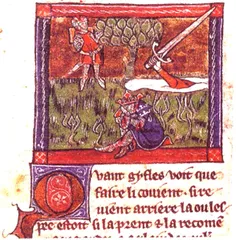 Quant gyfles voit que
faire li couient. si re
uient arriere la ou les
pee estoit si la prent & la recomē